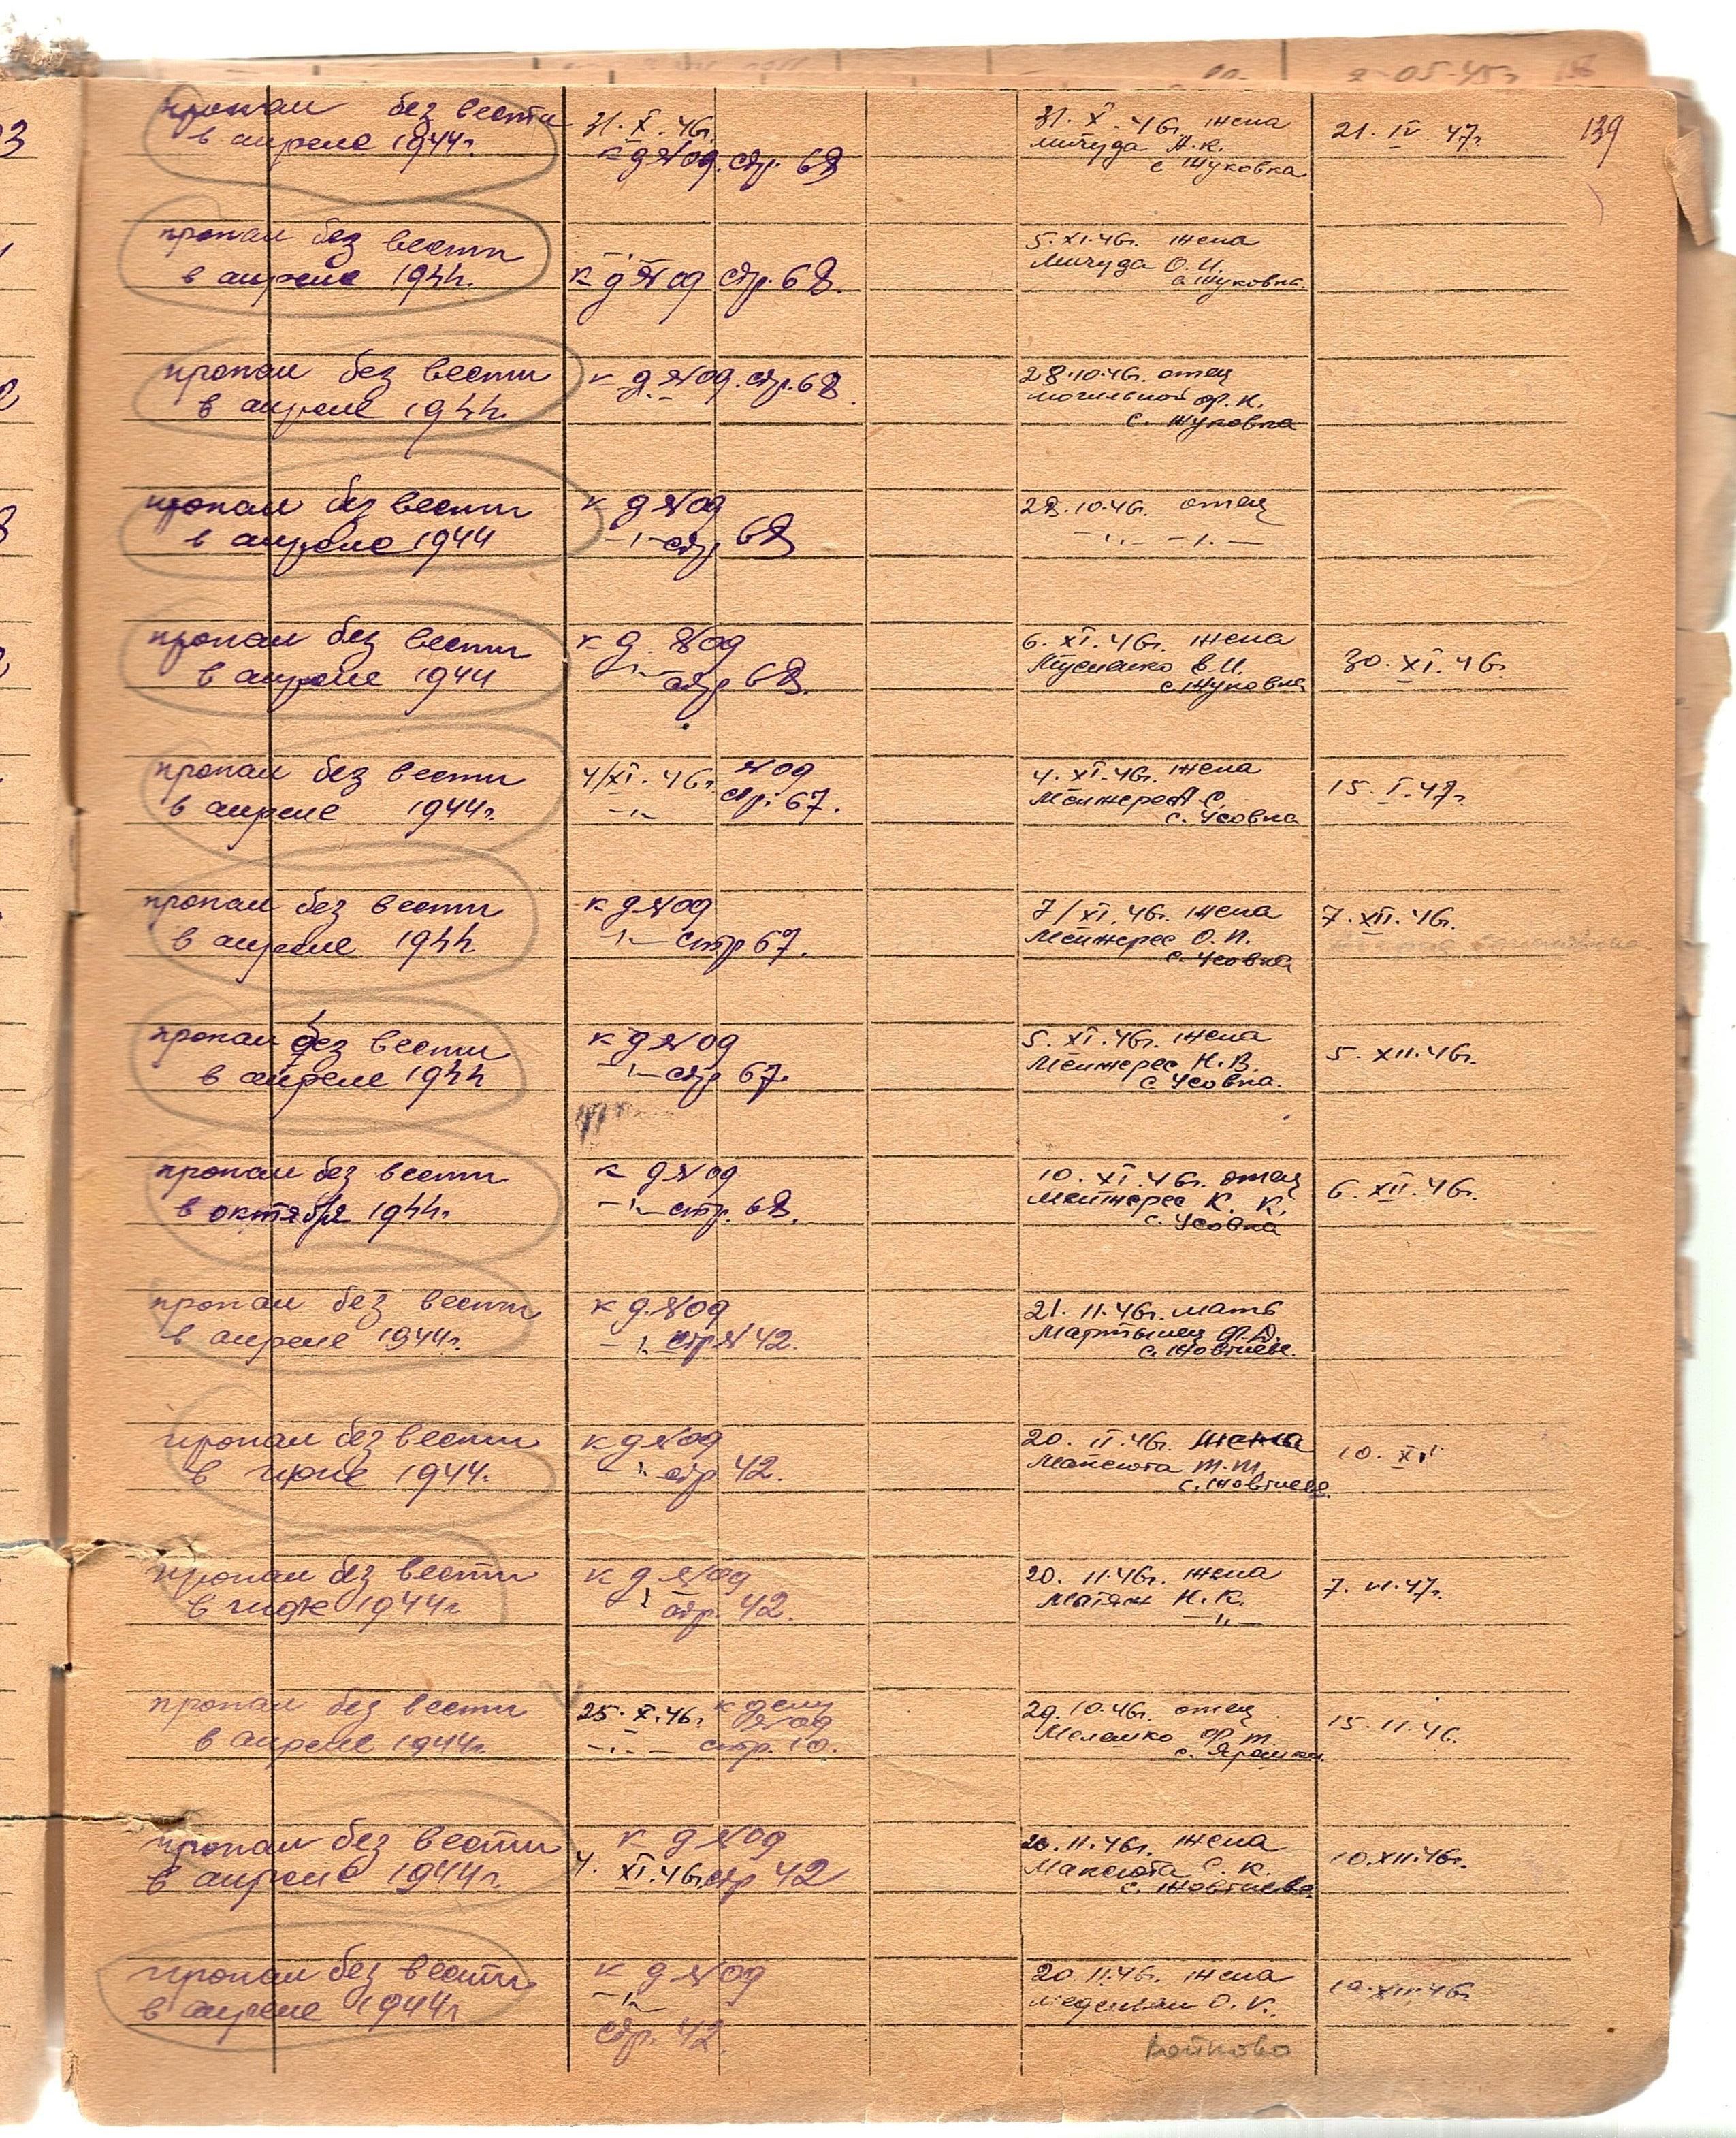 139
пропал без вести
в апреле 1944г.
31. X. 46г.
к д №09. стр. 68
31. X. 46г. жена
Мичуда А.К.
с Жуковка
21. IV. 47г.
пропал без вести
в апреле 1944.
к д №09 стр. 68.
5. XI. 46г. жена
Мичуда О.И.
с. Жуковка.
пропал без вести
в апреле 1944.
к д. №09. стр. 68.
28.10.46г. отец
Могильной Ф.К.
с. Жуковка
пропал без вести
в апреле 1944
к д №09
-"- стр 68
28.10.46г. отец
-"- -"-
пропал без вести
в апреле 1944
к д. №09
-"- стр 68.
6. XI. 46г. жена
В.И.
с. Жуковка
30. XI. 46г.
пропал без вести
в апреле 1944г.
4/XI. 46г. №09
-"- стр. 67.
4. XI. 46г. жена
Мейжерес А С.
с. Усовка
15. I. 47г.
пропал без вести
в апреле 1944.
к д №09
-"- стр 67.
7/XI. 46г. жена
Мейжерес О.П.
с. Усовка
7. XII. 46г.
пропал без вести
в апреле 1944
к д №09
-"- стр 67.
5. XI. 46г. жена
Мейжерес Н.В.
с Усовка.
5. XII. 46г.
пропал без вести
в октября 1944.
к д №09
-"- стр. 68.
10. XI. 46г. отец
Мейжерес К. К.
с. Усовка
6. XII. 46г.
пропал без вести
в апреле 1944г.
к д. №09
-"- стр № 42.
21. 11. 46г. мать
Мартынец Ф.Д.
с.
пропал без вести
в июне 1944.
к д №09
-"- стр 42.
20. II. 46г. жена
Максюта М.М.
с.
10. XI
пропал без вести
в 1944г
к д №09
-"- стр. 42.
20. 11. 46г. жена
Матяж Н.К.
-"-
7. VI. 47г.
пропал без вести
в апреле 1944г.
25. X. 46г. к делу
№09
-"- стр. 10.
29.10.46г. отец
Меламко Ф.М.
с.
15. 11. 46.
пропал без вести
в апреле 1944г.
к д №09
4. XI. 46г. стр 42
20. 11. 46г. жена
Максюта С. К.
с.
10. XII. 46г.
пропал без вести
в апреле 1944г
к д №09
-"-
стр. 42.
20 11. 46г. жена
О. К.
10. XII. 46г
Войково